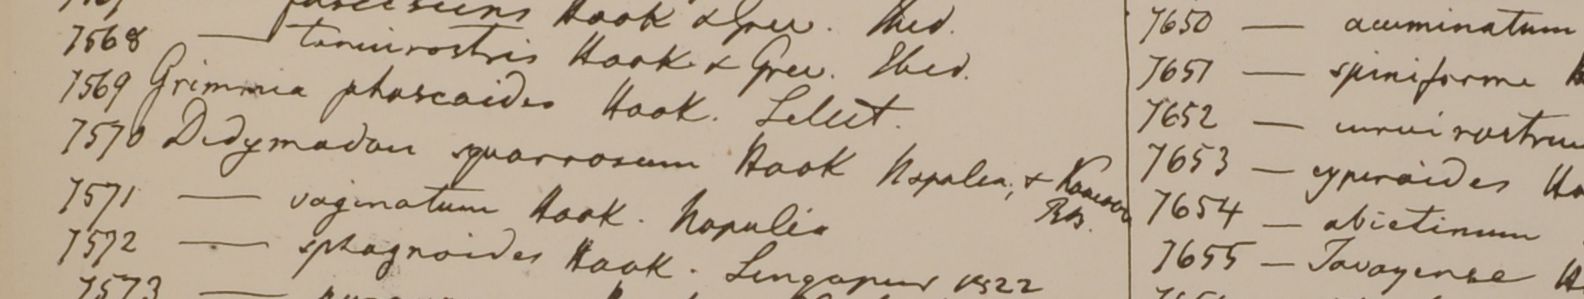 Hook & Grev. Ibid.
7568 — tenuirostris Hook & Grev. Ibid.
7569 Grimmia phascoides Hook. Silhet.
7570 Didymodon squarrosum Hook Napalia, & Kamoon
RB.
7571 — vaginatum Hook. Napalia
7572 — sphagnoides Hook. Singapur 1822
7573 —
7650 — acuminatum
7651 — spiniforme H
7652 — curvirostrum
7653 — cyperoides Ho
7654 — abietinum
7655 — Tavoyense H